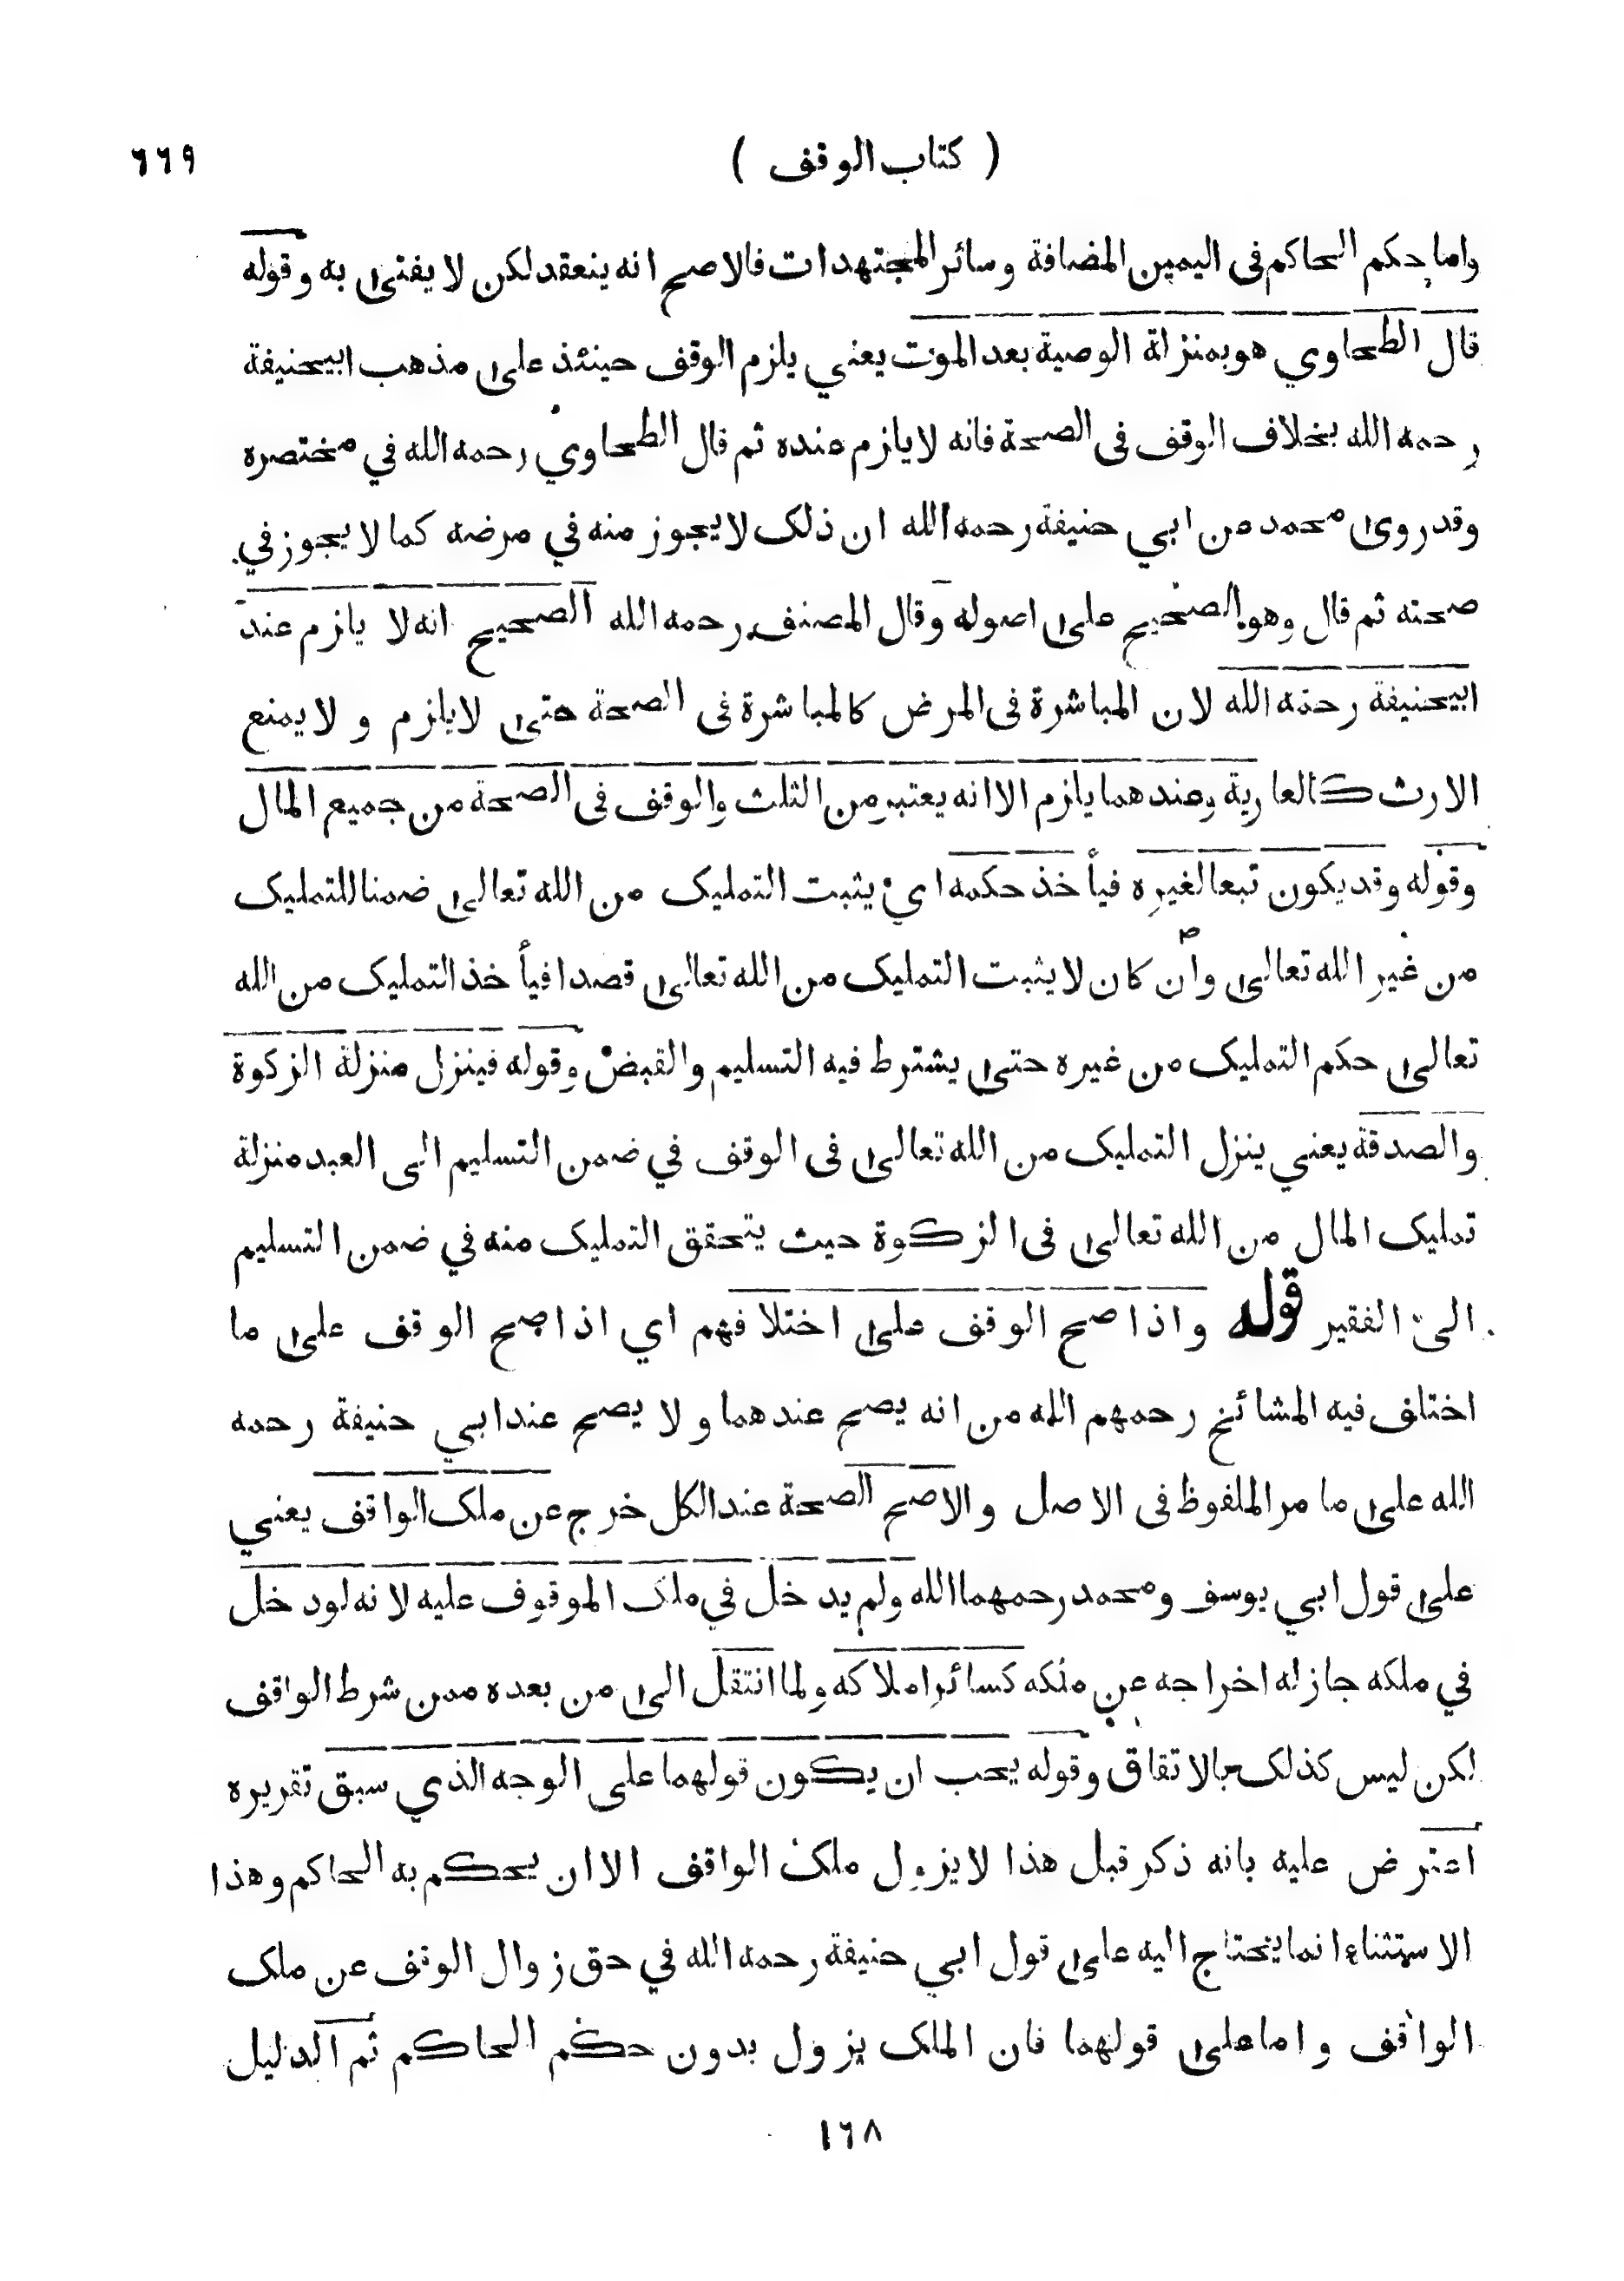 ( كتاب الوقف )
٦٦٩
واما حكم الحاكم فى اليمين المضافة وسائر المجتهدات فالاصح انه ينعقد لكن لا يفتى به وقوله
قال الطحاوي هو بمنزلة الوصية بعد الموت يعني يلزم الوقف حينئذ على مذهب ابيحنيفة
رحمه الله بخلاف الوقف فى الصحة فانه لا يلزم عنده ثم قال الطحاوي رحمه الله في مختصره
وقد روى محمد عن ابي حنيفة رحمه الله ان ذلك لا يجوز منه في مرضه كما لا يجوز في
صحته ثم قال وهو الصحيح على اصوله وقال المصنف رحمه الله الصحيح انه لا يلزم عند
ابيحنيفة رحمه الله لان المباشرة فى المرض كالمباشرة فى الصحة حتى لا يلزم و لا يمنع
الارث كالعارية وعندهما يلزم الا انه يعتبر من الثلث والوقف فى الصحة من جميع المال
وقوله وقد يكون تبعا لغيره فيأخذ حكمه اي يثبت التمليك من الله تعالى ضمنا للتمليك
من غير الله تعالى وان كان لا يثبت التمليك من الله تعالى قصدا فيأخذ التمليك من الله
تعالى حكم التمليك من غيره حتى يشترط فيه التسليم والقبض وقوله فينزل منزلة الزكوة
والصدقة يعني ينزل التمليك من الله تعالى فى الوقف في ضمن التسليم الى العبد منزلة
تمليك المال من الله تعالى فى الزكوة حيث يتحقق التمليك منه في ضمن التسليم
الى الفقير قوله واذا صح الوقف على اختلافهم اي اذا صح الوقف على ما
اختلف فيه المشائخ رحمهم الله من انه يصح عندهما و لا يصح عند ابي حنيفة رحمه
الله على ما مر الملفوظ فى الاصل والاصح الصحة عند الكل خرج عن ملك الواقف يعني
على قول ابي يوسف ومحمد رحمهما الله ولم يدخل في ملك الموقوف عليه لانه لو دخل
في ملكه جاز له اخراجه عن ملكه كسائر املاكه ولما انتقل الى من بعده ممن شرط الواقف
لكن ليس كذلك بالاتفاق وقوله يجب ان يكون قولهما على الوجه الذي سبق تقريره
اعترض عليه بانه ذكر قبل هذا لا يزول ملك الواقف الا ان يحكم به الحاكم وهذا
الاستثناء انما يحتاج اليه على قول ابي حنيفة رحمه الله في حق زوال الوقف عن ملك
الواقف واما على قولهما فان الملك يزول بدون حكم الحاكم ثم الدليل
١٦٨